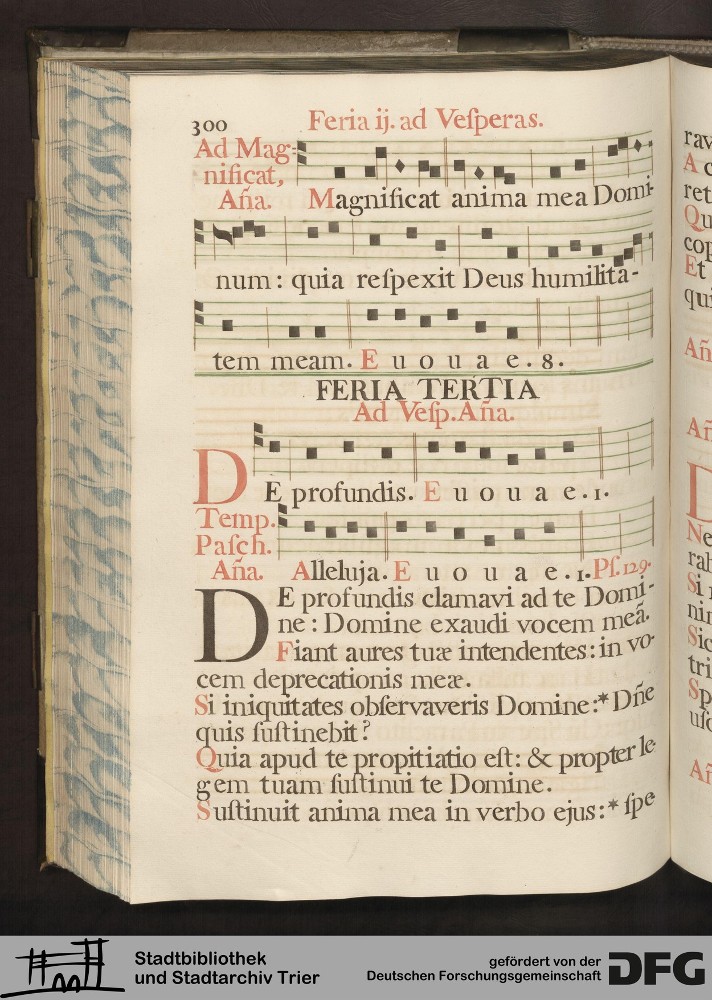 300 Feria ij. ad Veſperas.
Ad Mag-
nificat,
Aña. Magnificat anima mea Domi-
num: quia reſpexit Deus humilita-
tem meam. E u o u a e. 8.
FERIA TERTIA
Ad Veſp. Aña.
DE profundis. E u o u a e. 1.
Temp.
Paſch.
Aña. Alleluja. E u o u a e. 1. Pſ. 129.
DE profundis clamavi ad te Domi-
ne: Domine exaudi vocem meã.
Fiant aures tuæ intendentes: in vo-
cem deprecationis meæ.
Si iniquitates obſervaveris Domine:* Dñe
quis ſuſtinebit?
Quia apud te propitiatio eſt: & propter le-
gem tuam ſuſtinui te Domine.
Suſtinuit anima mea in verbo ejus:* ſpe
rav
A c
ret
Qu
cop
Et
qui
Añ
Añ
D
Ne
rab
Si
nin
Sic
tri
Sp
uſq
Añ
Stadtbibliothek
und Stadtarchiv Trier
gefördert von der
Deutschen Forschungsgemeinschaft DFG